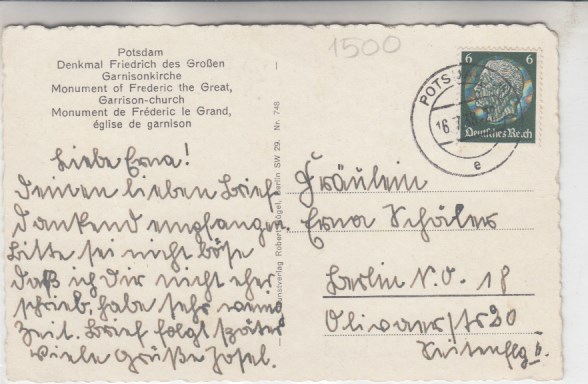 Potsdam
Denkmal Friedrich des Großen
Garnisonkirche
Monument of Frederic the Great,
Garrison-church
Monument de Fréderic le Grand,
église de garnison
1500
6 6
Deutsches Reich
POTS
16.7.
e
Kunstverlag Robert Vogel, Berlin SW 29. Nr. 748
Liebe Erna!
Deinen lieben Brief
dankend empfangen.
Bitte sei nicht böse
daß ich Dir nicht eher
schrieb, habe sehr wenig
Zeit. Brief folgt später
Viele Grüße Josef.
Fräulein
Erna Schöler
Berlin N.O. 18
Olivaerstr 20
Seitenflg II.